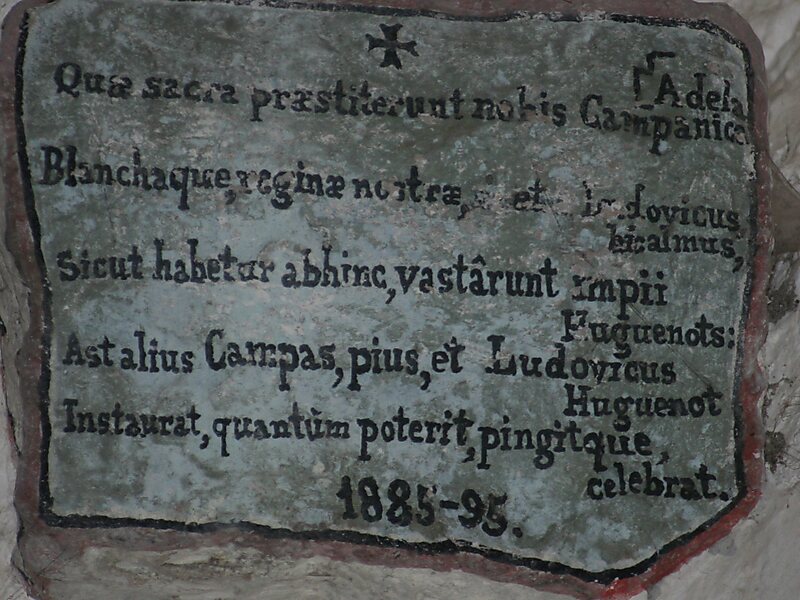 ✠
Quæ sacra præstiterunt nobis Campanica
Adela
Blanchaque, reginæ nostræ, et Ludovicus
bisalmus,
Sicut habetur abhinc, vastârunt impii
Huguenots:
Ast alius Campas, pius, et Ludovicus
Huguenot
Instaurat, quantùm poterit, pingitque,
celebrat.
1885-95.